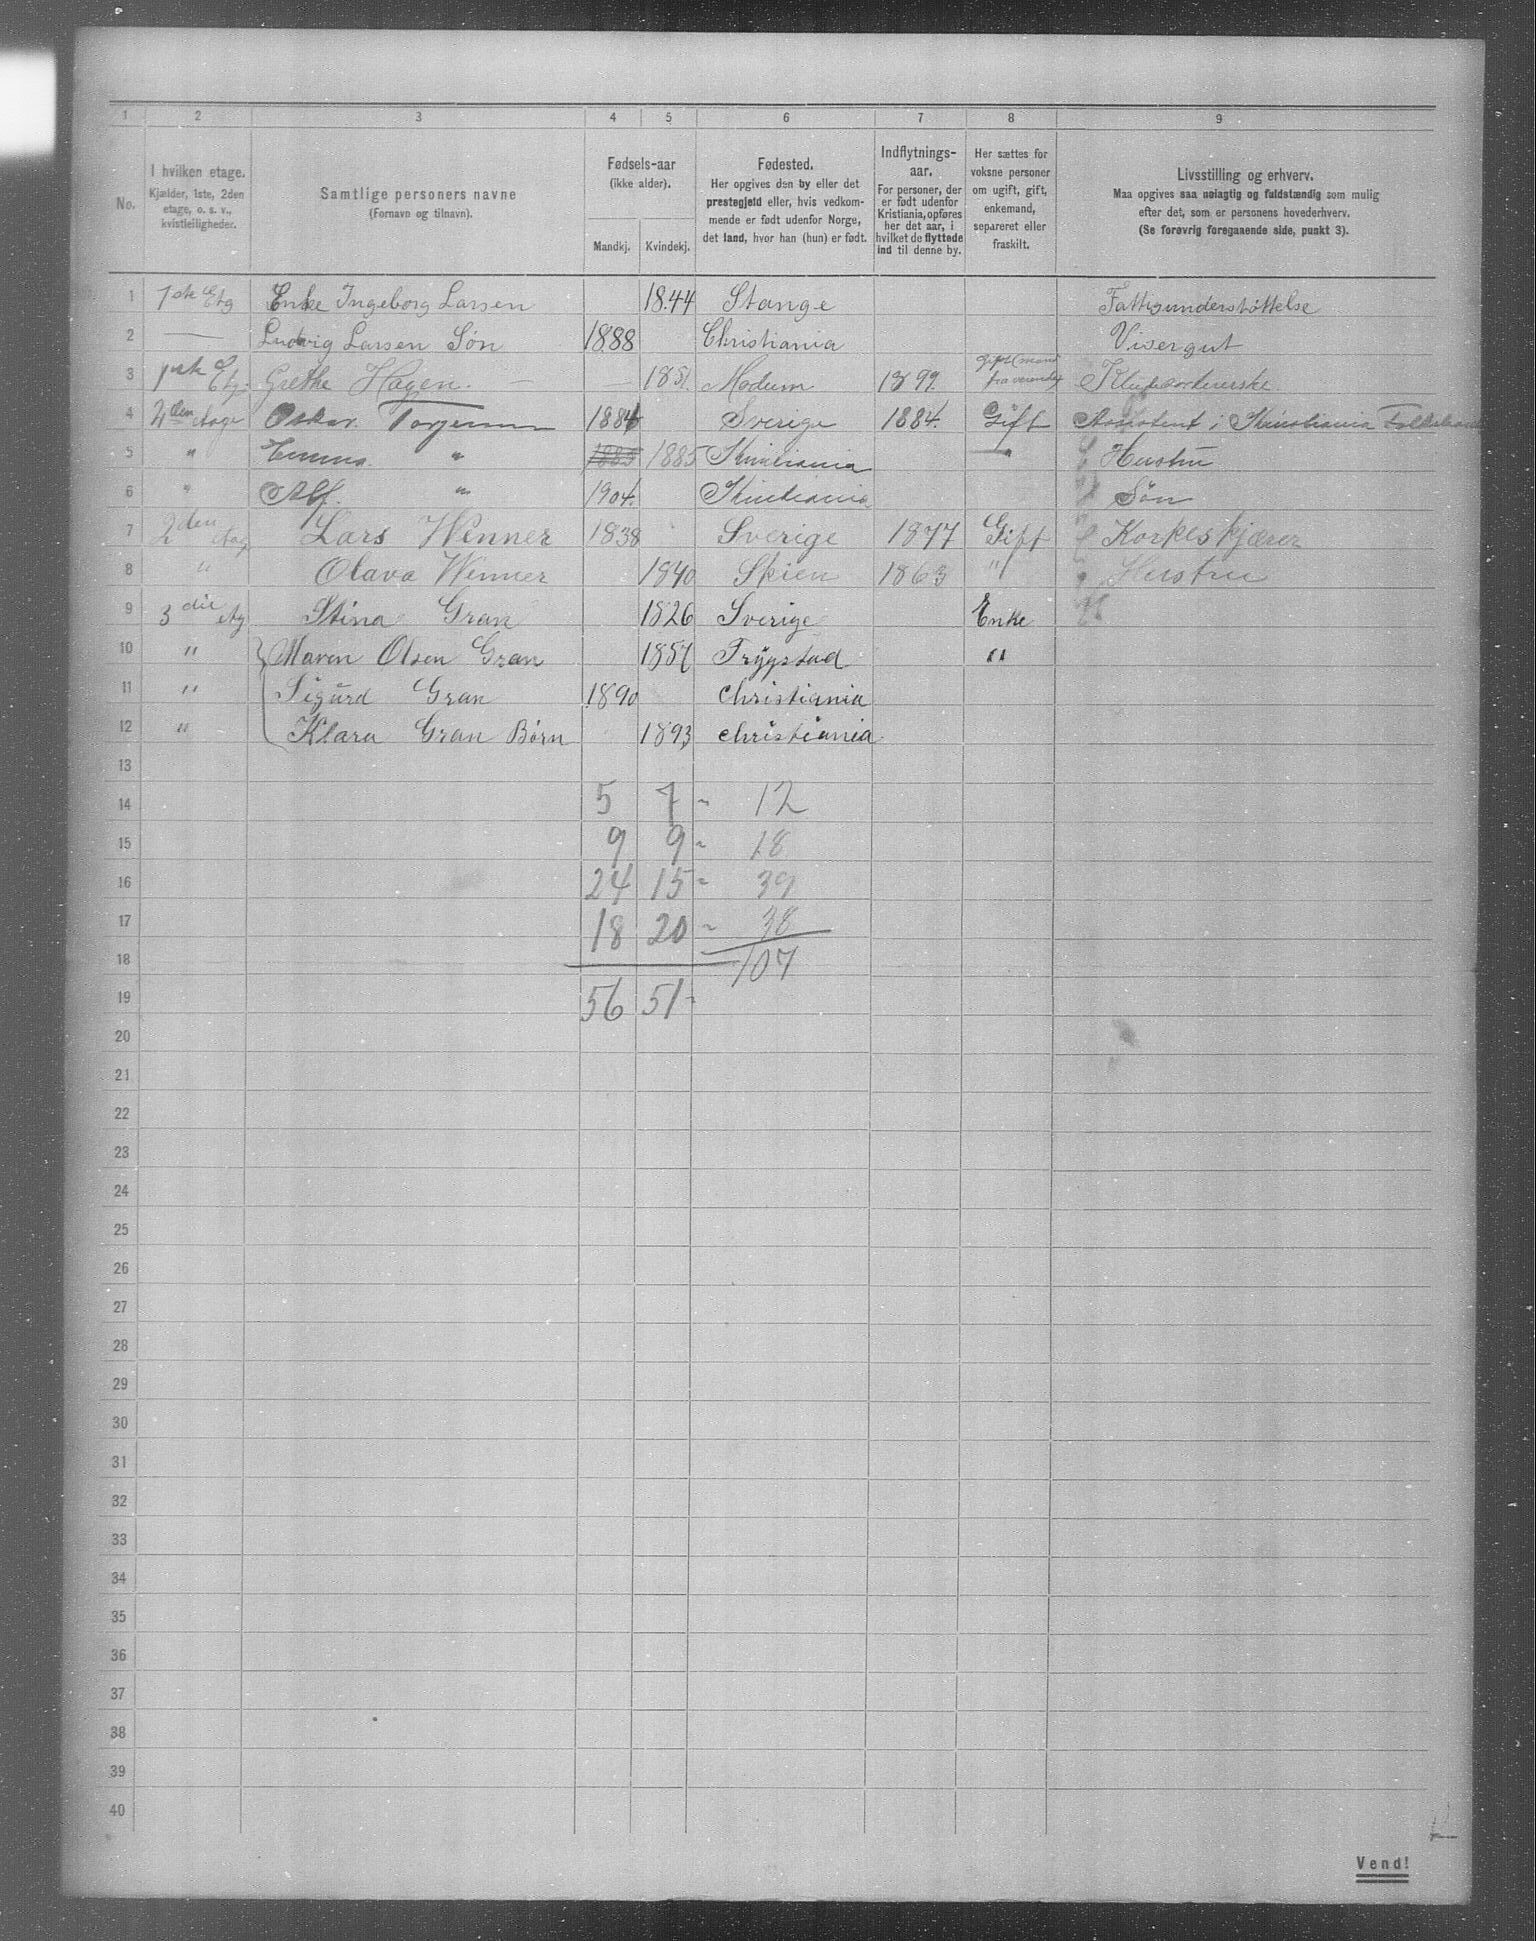 1 2 3 4 5 6 7 8 9
No.
I hvilken etage.
Kjælder, 1ste, 2den
etage, o. s. v.,
kvistleiligheder.
Samtlige personers navne
(Fornavn og tilnavn).
Fødsels-aar
(ikke alder).
Mandkj. Kvindekj.
Fødested.
Her opgives den by eller det
prestegjeld eller, hvis vedkom-
mende er født udenfor Norge,
det land, hvor han (hun) er født.
Indflytnings-
aar.
For personer, der
er født udenfor
Kristiania, opføres
her det aar, i
hvilket de flyttede
ind til denne by.
Her sættes for
voksne personer
om ugift, gift,
enkemand,
separeret eller
fraskilt.
Livsstilling og erhverv.
Maa opgives saa nøiagtig og fuldstændig som mulig
efter det, som er personens hovederhverv.
(Se forøvrig foregaaende side, punkt 3).
1 1ste Etg Enke Ingeborg Larsen 1844 Stange Fattigunderstøttelse
2 — Ludvig Larsen Søn 1888 Christiania Visergut
3 1ste Etg. Grethe Hagen. — — 1851. Modum 1899 Gift (mand fra
4 2den etage Oskar Torgersen 1884 Sverige 1884. Gift Assistent i Kristiania
5 " Emma " 1885 1885 Kristiania " Hustru
6 " Alf. " 1904. Kristiania Søn
7 2den etag Lars Wenner 1838 Sverige 1877 Gift Korkeskjærer
8 " Olava Wenner 1840 Skien 1863 " Hustru
9 3die etg Stina Gran 1826 Sverige Enke
10 " Maren Olsen Gran 1857 Trygstad "
11 " Sigurd Gran 1890 Christiania
12 " Klara Gran Børn 1893 christiania
13
14 5 7 - 12
15 9 9 - 18
16 24 15 - 39
17 18 20 - 38
18 107
19 56 51 -
20
21
22
23
24
25
26
27
28
29
30
31
32
33
34
35
36
37
38
39
40
Vend!